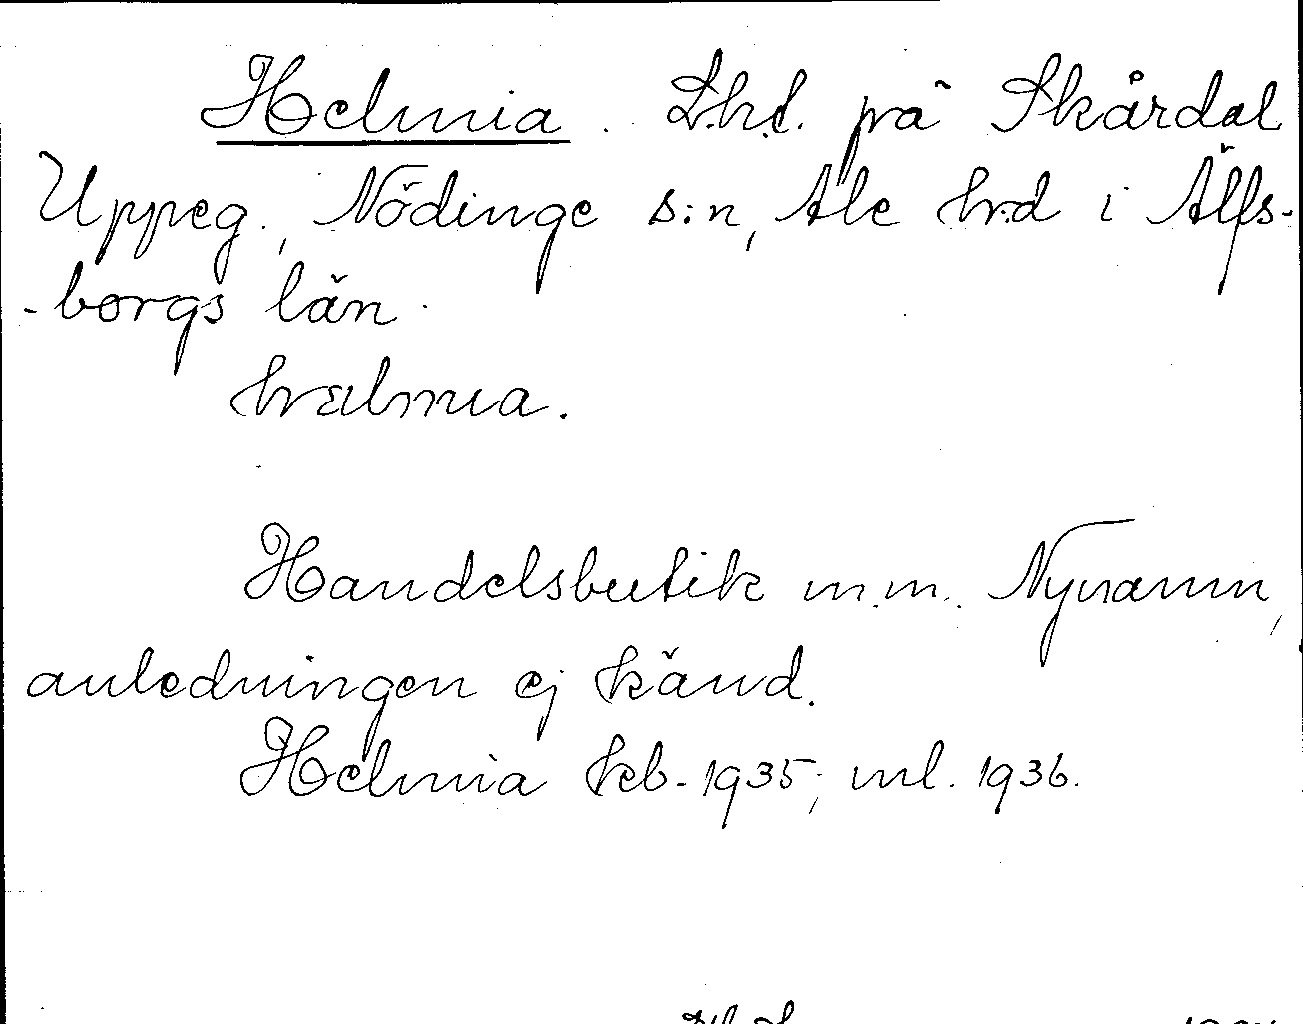 Helmia. L.h.l. på Skårdal
Uppeg., Nödinge s:n, Ale hrd i Älfs-
-borgs län.
hrælmıa.
Handelsbutik m.m. Nynamn,
anledningen ej känd.
Helmia feb. 1935; ml. 1936.